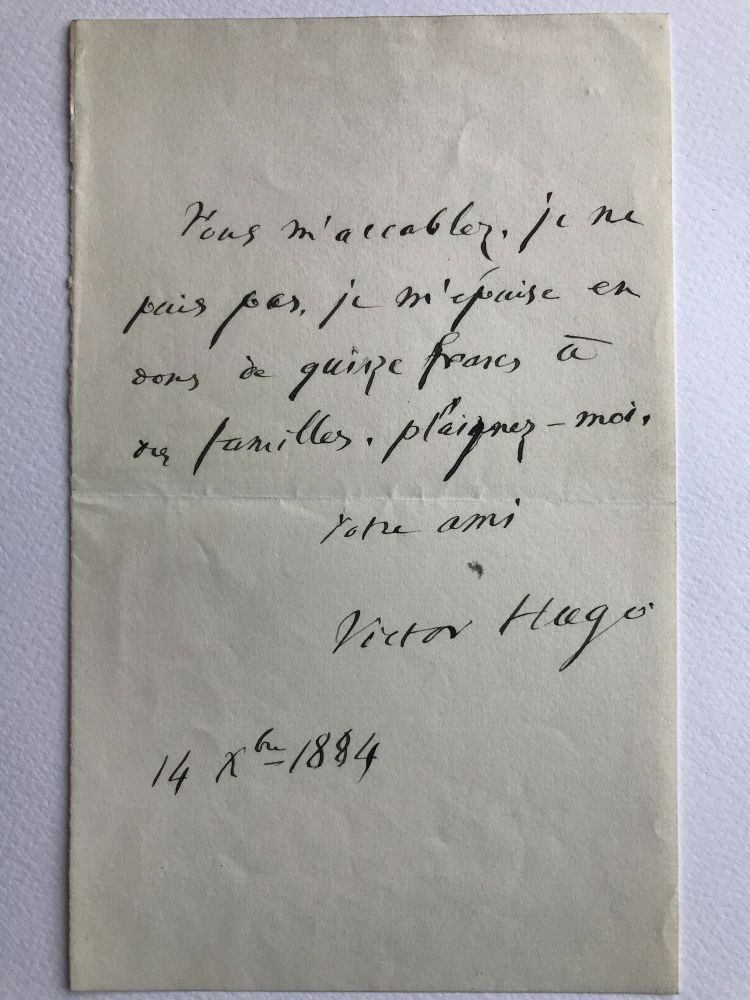 Vous m'accablez. je ne
puis pas. je m'épuise en
dons de quinze francs à
des familles. plaignez-moi.
votre ami
Victor Hugo
14 Xbre 1884